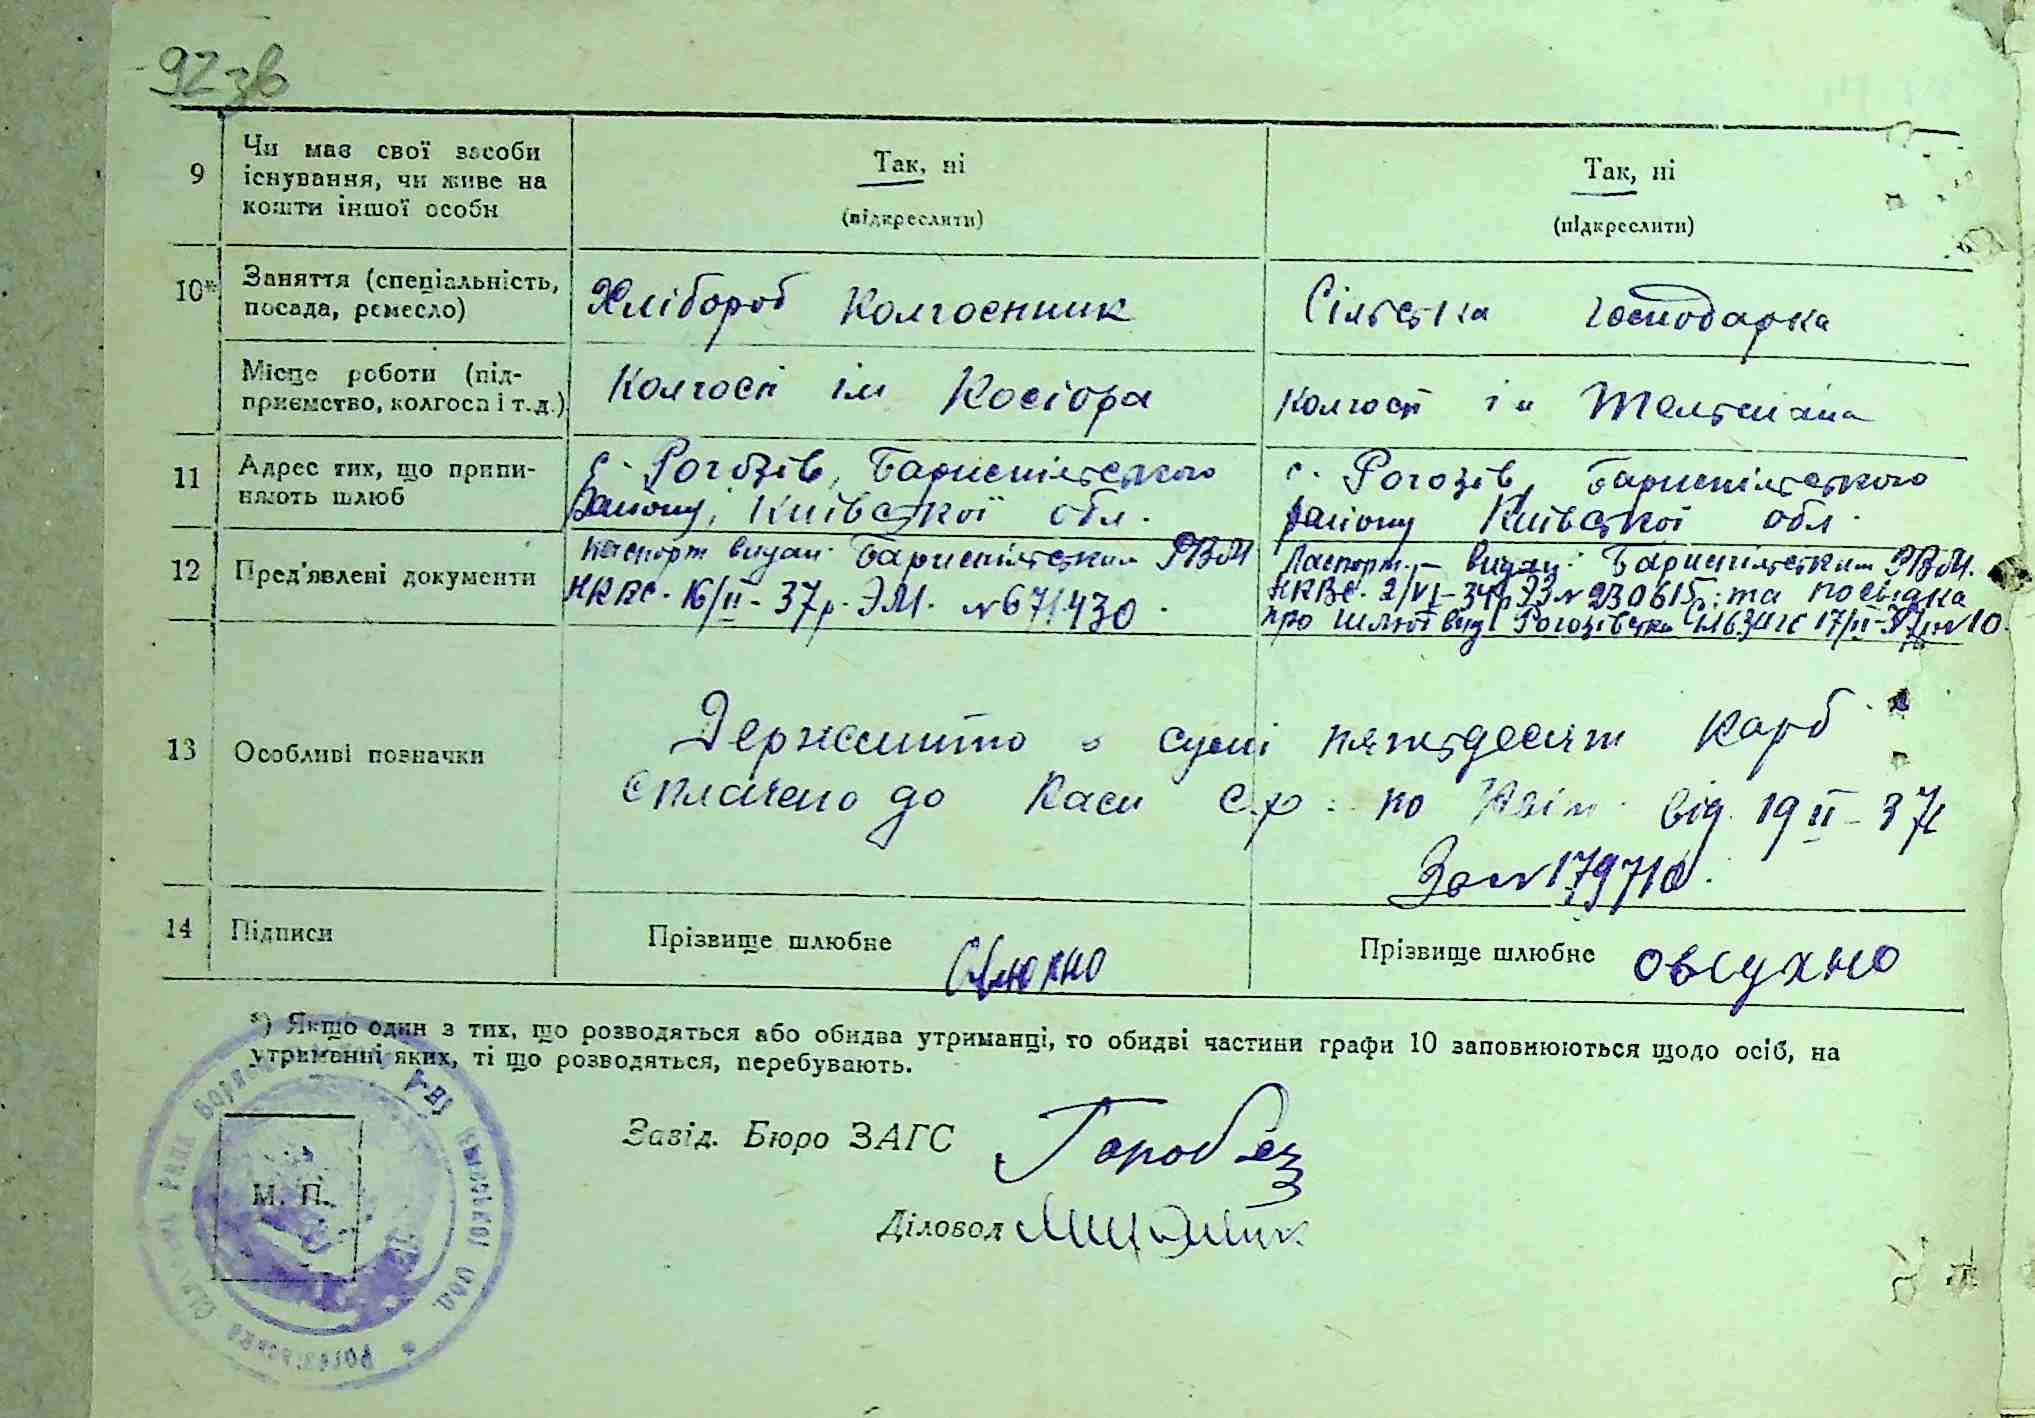 92 зв
9 Чи має свої засоби існування, чи живе на кошти іншої особи
Так, ні
(підкреслити)
Так, ні
(підкреслити)
10* Заняття (спеціальність, посада, ремесло)
Хлібороб колгоспник
Сільська господарка
Місце роботи (підприємство, колгосп і т.д.)
Колгосп ім Косіора
Колгосп ім Тельмана
11 Адрес тих, що припиняють шлюб
с. Рогозів, Бариспільського
району, Київської обл.
с. Рогозів, Бариспільського
району Київської обл.
12 Пред'явлені документи
Паспорт видан. Бариспільським РВМ
НКВС. 16/II-37р. ЭМ. № 671430.
Паспорт – видан. Бариспільським РВМ.
НКВС. 2/VI-34р № 230615 та посвідка
про шлюб вид. Рогозівська 17/II № 10.
13 Особливі позначки
Держмито в сумі пятьдесят карб
сплачено до каси с.р. по квіт. від. 19 II-37
За № 179710.
14 Підписи
Прізвище шлюбне
Прізвище шлюбне Овсухно
*) Якщо один з тих, що розводяться або обидва утриманці, то обидві частини графи 10 заповнюються щодо осіб, на
утриманні яких, ті що розводяться, перебувають.
Завід. Бюро ЗАГС Горобец
Діловод
М. П.